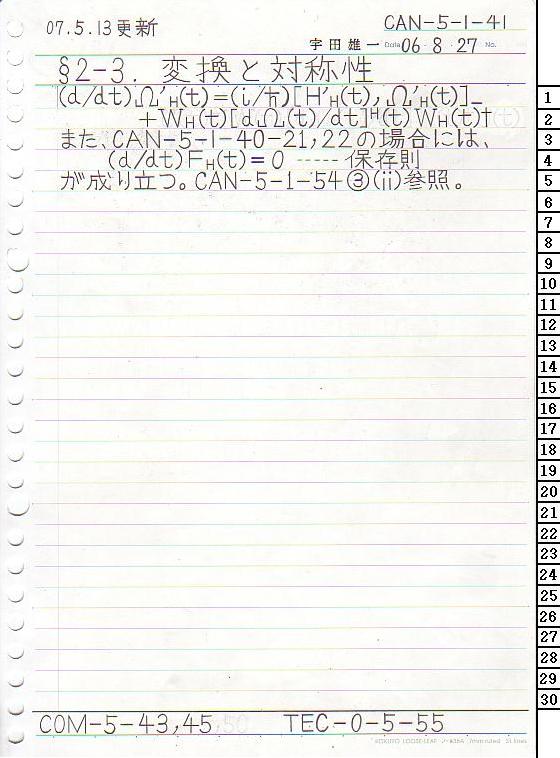 07.5.13更新
CAN-5-1-41
宇田雄一 Date 06・8・27 No.
§2-3. 変換と対称性
(d/dt)Ω'H(t)=(i/ħ)[H'H(t),Ω'H(t)]_
+WH(t)[dΩ(t)/dt]H(t)WH(t)†
また、CAN-5-1-40-21,22の場合には、
(d/dt)FH(t)=0 ----- 保存則
が成り立つ。CAN-5-1-54③(ii)参照。
1
2
3
4
5
6
7
8
9
10
11
12
13
14
15
16
17
18
19
20
21
22
23
24
25
26
27
28
29
30
COM-5-43,45
TEC-0-5-55
KOKUYO LOOSE-LEAF ノ-836A 7mm ruled 31 lines